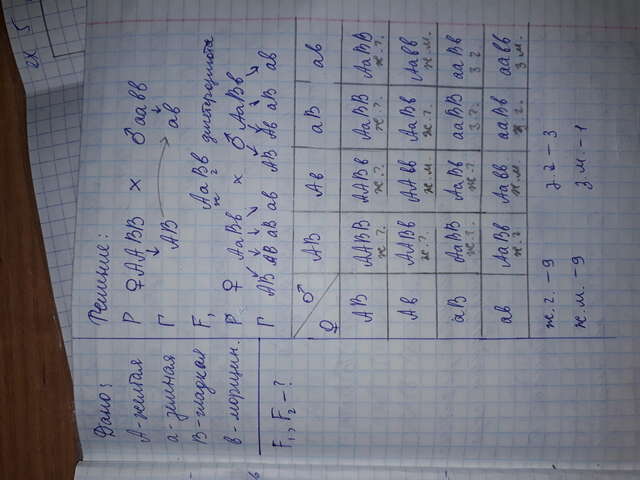 2х 5
Дано:
А-желтая
а-зеленая
В-гладкая
в-морщин.
F₁, F₂ - ?
Решение:
Р ♀ААВВ × ♂аавв
Г АВ ав
F₁ АаВв дигетерозигота
ж г
Р ♀ АаВв × ♂ АаВв
Г АВ АВ аВ ав АВ Ав аВ ав
♀ ♂ АВ Ав аВ ав
АВ ААВВ ААВв АаВВ АаВв
ж.г. ж.г. ж.г. ж.г.
Ав ААВв ААвв АаВв Аавв
ж.г. ж.м. ж.г. ж.м.
аВ АаВВ АаВв ааВВ ааВв
ж.г. ж.г. з.г. з.г.
ав АаВв Аавв ааВв аавв
ж.г. ж.м. з.г. з.м.
ж.г. - 9 з.г - 3
ж.м. - 9 з.м. - 1